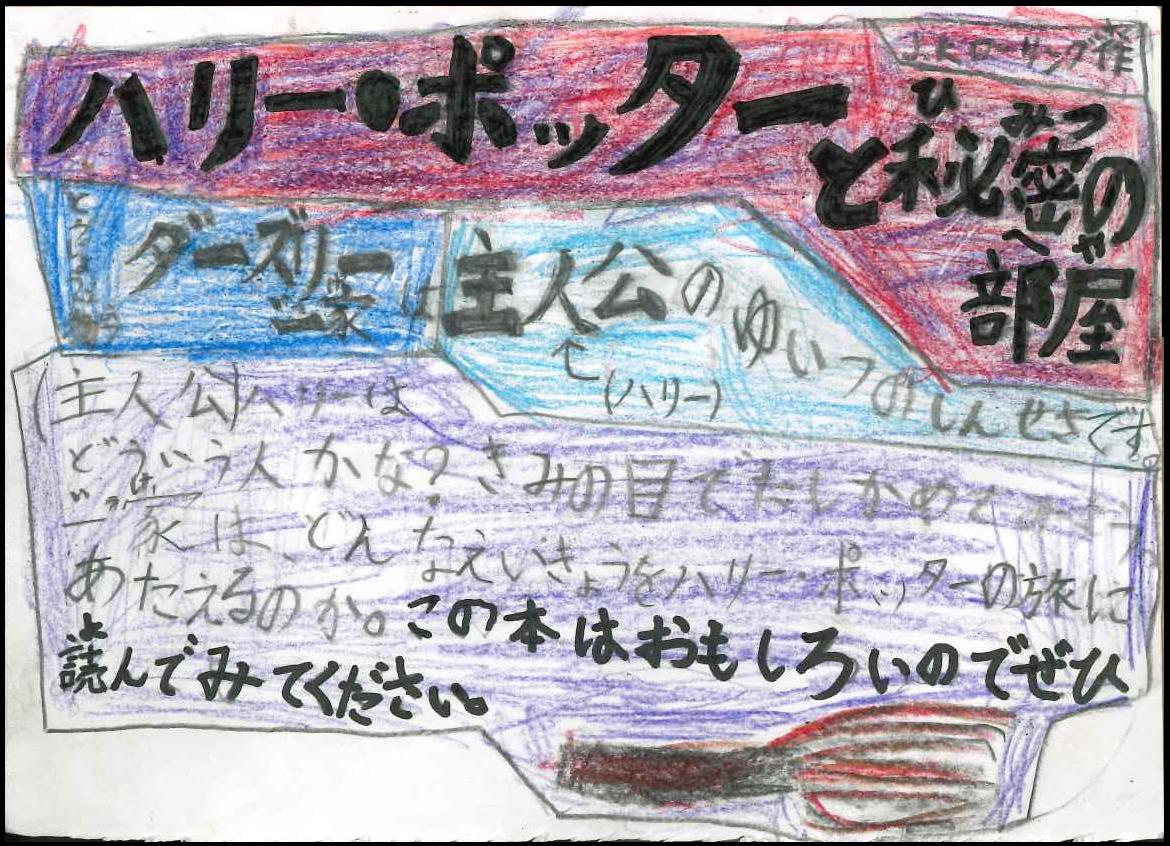 ハリー・ポッター
J.K ローリング作
と秘密の
ひ みつ
部屋
へ や
ダーズリー
一家
主人公のゆいつのしんせきです。
(ハリー)
(主人公)ハリーは
どういう人かな？きみの目でたしかめて
一家は、どんなえいきょうをハリー・ポッターの旅に
あたえるのか。この本はおもしろいのでぜひ
読んでみてください。
よ